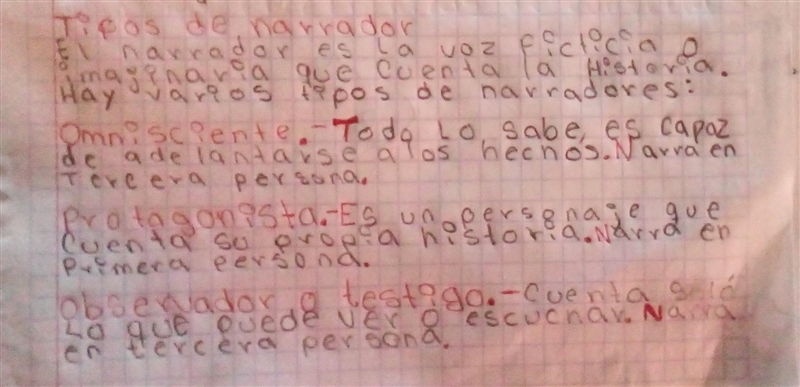 Tipos de narrador
El narrador es la voz ficticia o
imaginaria que cuenta la Historia.
Hay varios tipos de narradores:
Omnisciente.-Todo lo sabe, es capaz
de adelantarse a los hechos. Narra en
Tercera persona.
Protagonista.-Es un personaje que
Cuenta su propia historia. Narra en
Primera persona.
Observador o testigo.-Cuenta solo
Lo que puede ver o escuchar. Narra
en tercera persona.